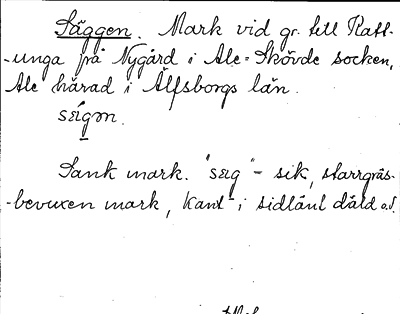 Säggen. Mark vid gr. till Ratt-
-unga från Nygård i Ale-Skövde socken,
Ale härad i Älfsborgs län.
sɛ́igɔn.
Sank mark. "sɛig" - sik, starrgräs-
-bevuxen mark, kant i sidlänt dåld o.d.